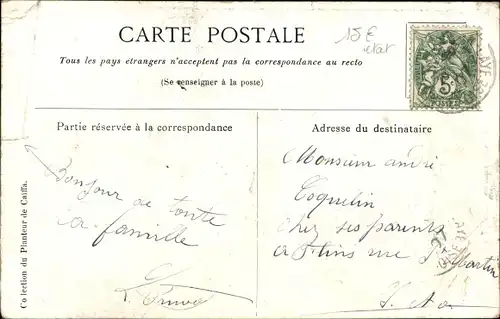 CARTE POSTALE
15€
état
Tous les pays étrangers n'acceptent pas la correspondance au recto
(Se renseigner à la poste)
5
POSTES
Partie réservée à la correspondance
Adresse du destinataire
Bonjour de toute
la famille
Monsieur andré
Coquelin
chez ses parents
a Flins rue St Martin
S. et O.
Collection du Planteur de Caïffa.